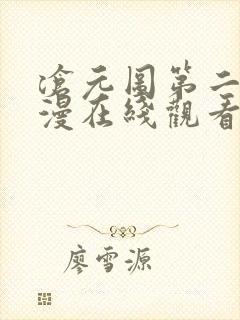 滄元圖第二
漫在綫觀看
廖雪源